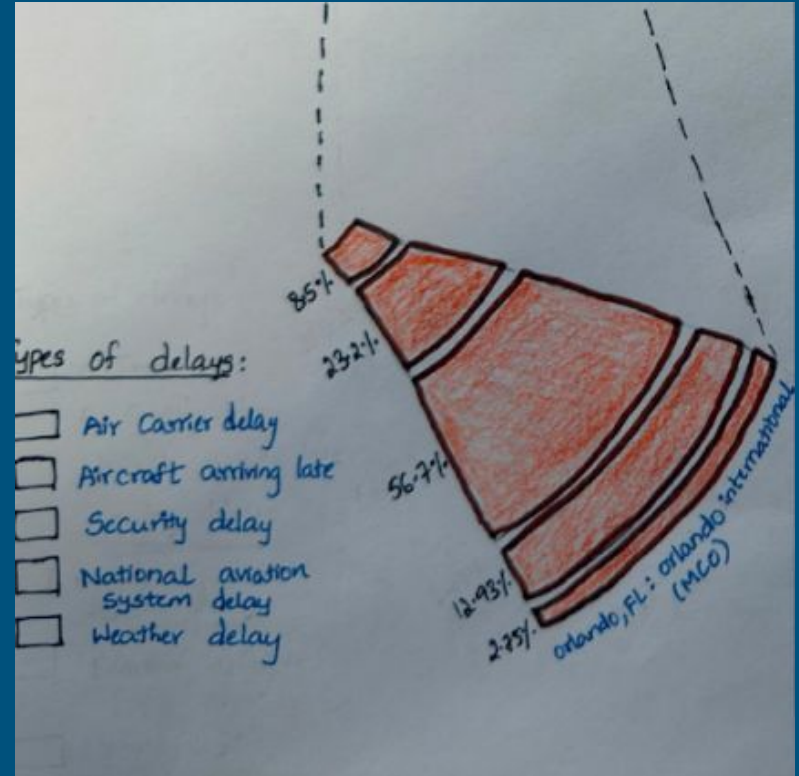 ypes of delays:
Air Carrier delay
Aircraft arriving late
Security delay
National aviation
system delay
Weather delay
8.5%
23.2%
56.7%
12.93%
2.75%
orlando, FL: orlando international
(MCO)